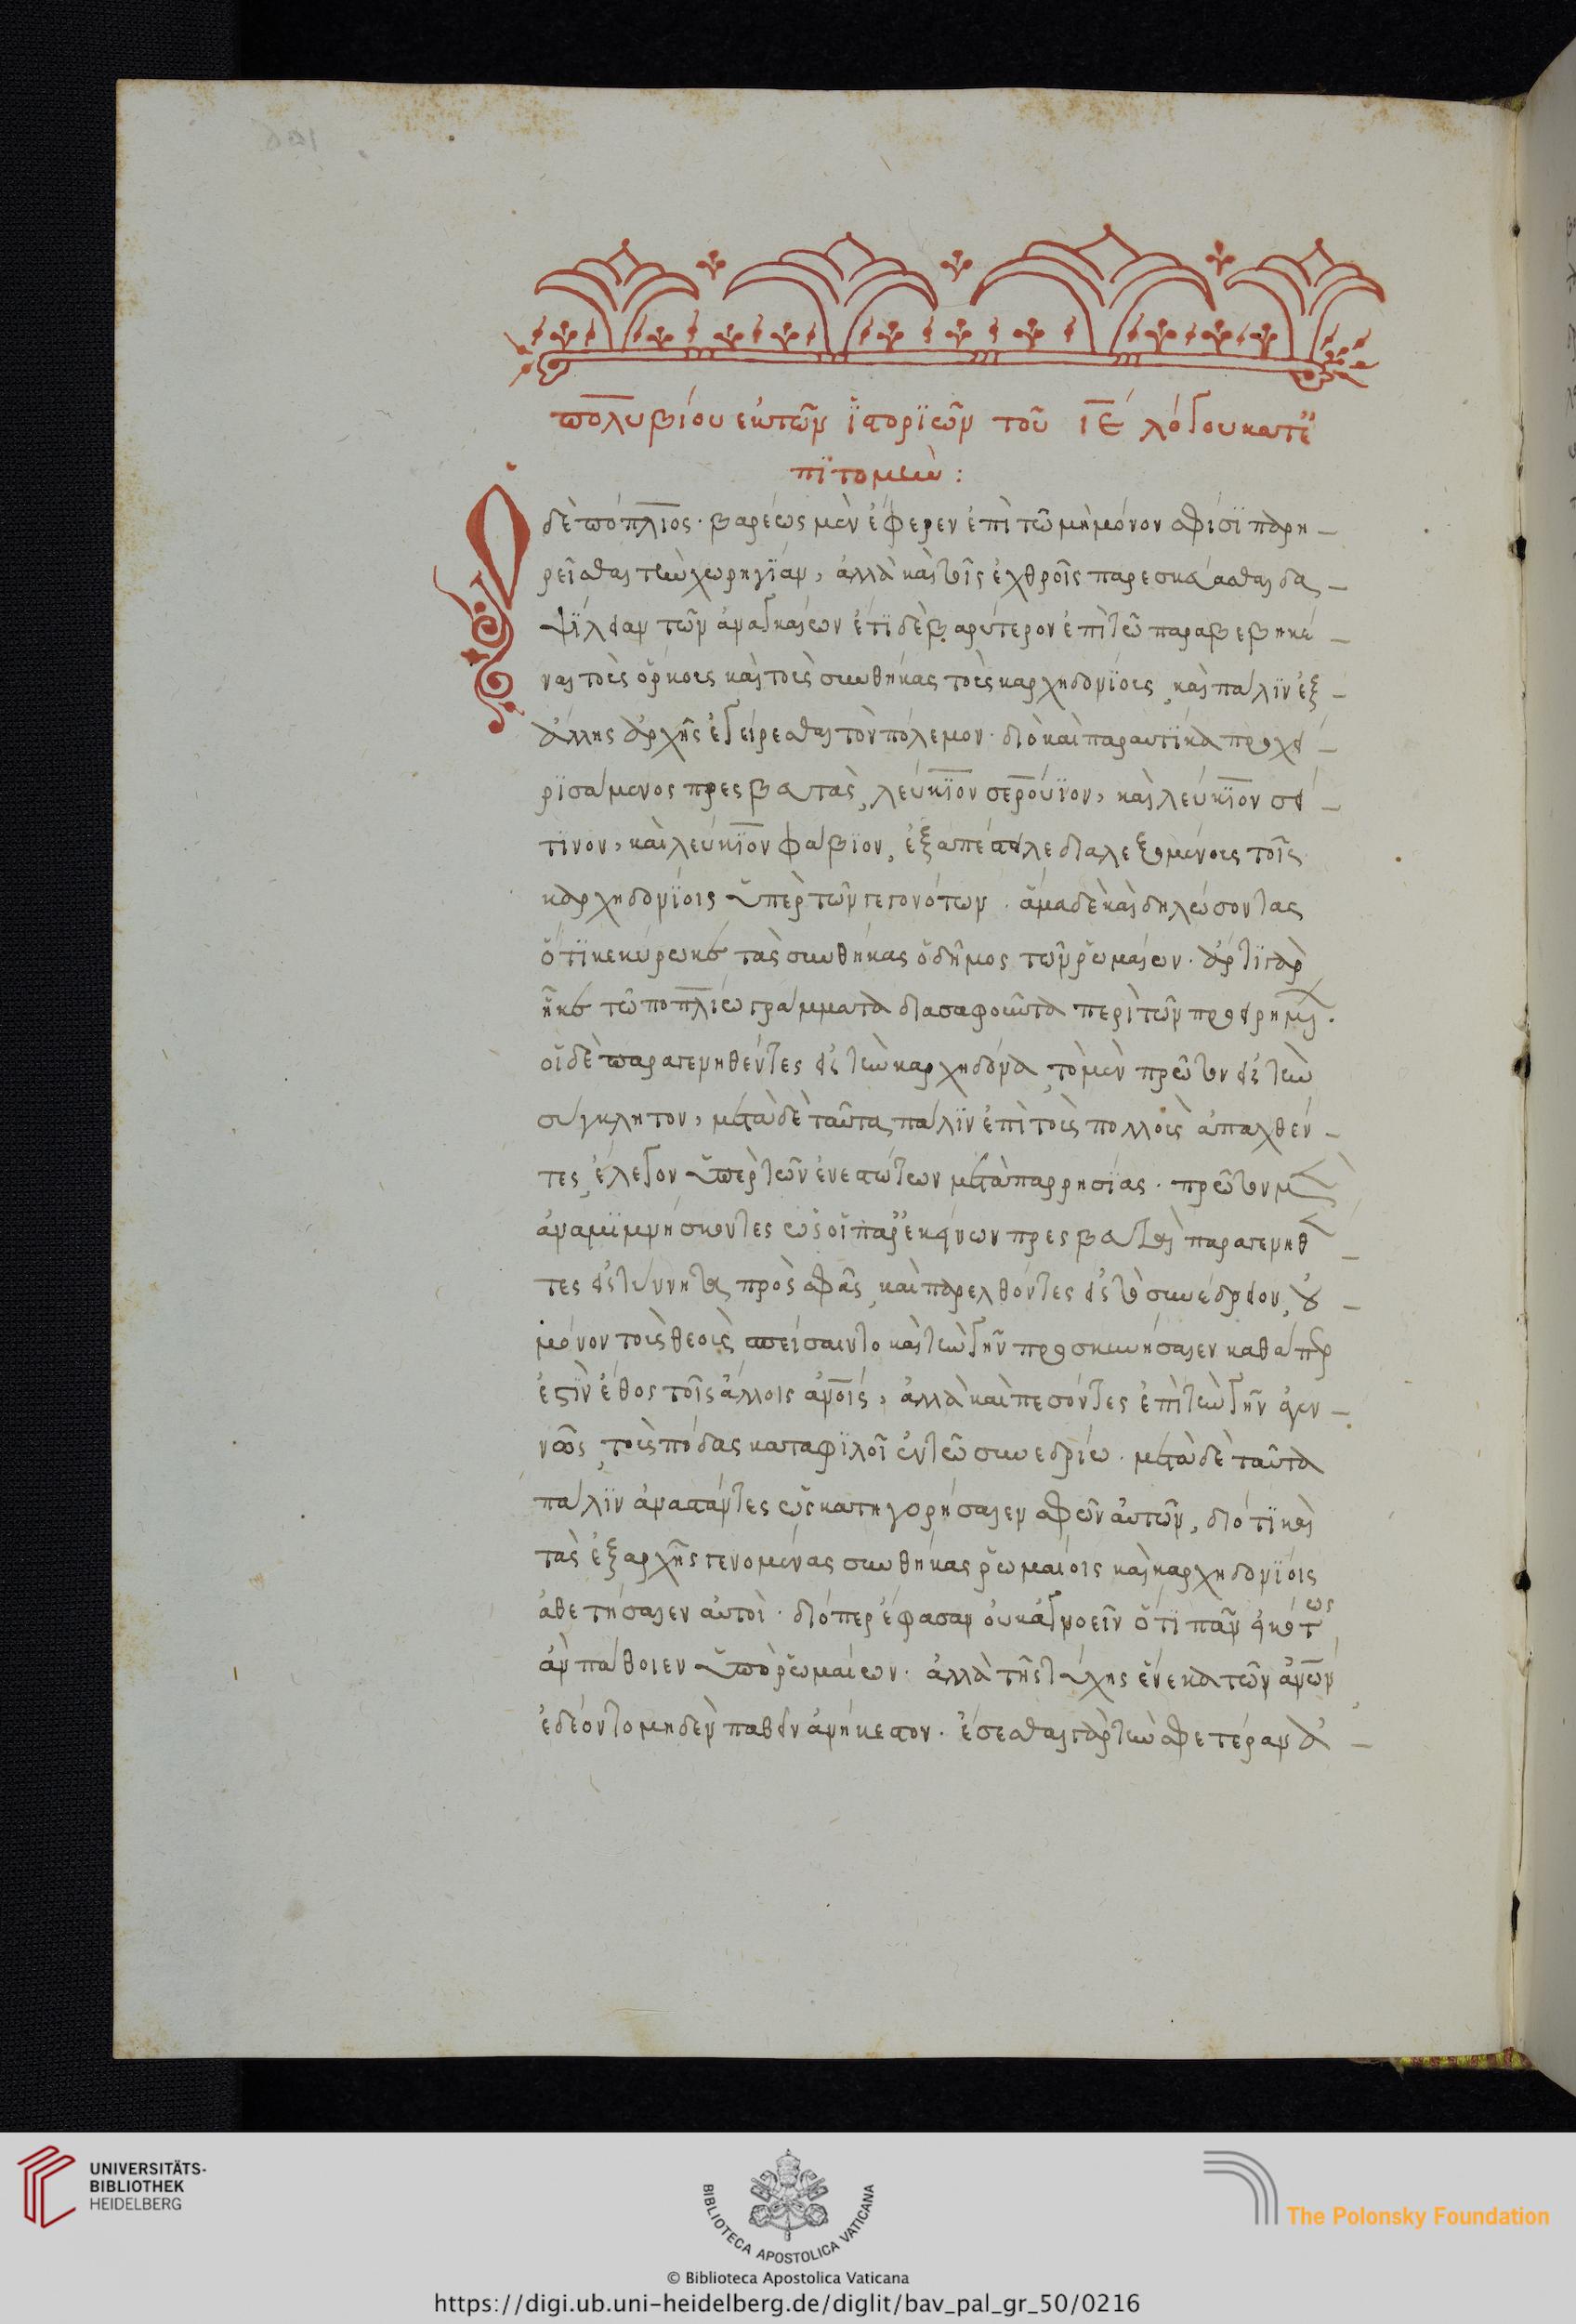 πολυβίου ἐκ τῶν ἱστοριῶν τοῦ ιε λόγου κατ' ἐ
πιτομὴν:
Ὁ δὲ πόπλιος. βαρέως μὲν ἔφερεν ἐπὶ τῶ μὴ μόνον σφίσι παρη-
ρεῖσθαι τὴν χορηγίαν, ἀλλὰ καὶ τοῖς ἐχθροῖς παρεσκευάσθαι δα-
ψίλειαν τῶν ἀναγκαίων ἔτι δὲ βαρύτερον ἐπὶ τῶ παραβεβηκέ-
ναι τοὺς ὅρκους καὶ τοὺς συνθήκας τοὺς καρχηδονίους, καὶ πάλιν ἐξ-
ἄλλης ἀρχῆς ἐγείρεσθαι τὸν πόλεμον. διὸ καὶ παραυτίκα προχει-
ρισάμενος πρεσβευτὰς, λεύκιον σερούιον, καὶ λεύκιον σέ-
τινον, καὶ λεύκιον φάβιον, ἐξαπέστειλε διαλεξομένους τοῖς
καρχηδονίοις ὑπὲρ τῶν γεγονότων. ἅμα δὲ καὶ δηλώσοντας
ὅτι κεκύρωκε τὰς συνθήκας ὁ δῆμος τῶν ῥωμαίων. ἄρτι γὰρ
ἧκε τῶ ποπλίω γράμματα διασαφοῦντα περὶ τῶν προειρημένων.
οἱ δὲ παραγενηθέντες εἰς τὴν καρχηδόνα, τὸ μὲν πρῶτον εἰς τὴν
σύγκλητον, μετὰ δὲ ταῦτα, πάλιν ἐπὶ τοὺς πολλοὺς ἀπαχθέν-
τες, ἔλεγον ὑπὲρ τῶν ἐνεστώτων μετὰ παρρησίας. πρῶτον μὲν
ἀναμιμνήσκοντες ὡς οἱ παρ' ἐκείνων πρεσβευταὶ παραγενηθέν-
τες εἰς τύννητα, πρὸς σφᾶς, καὶ παρελθόντες εἰς τὸ συνέδριον, οὐ-
μόνον τοὺς θεοὺς σπείσαιντο καὶ τὴν γῆν προσκυνήσαιεν καθάπερ
ἐστὶν ἔθος τοῖς ἄλλοις ἀνοῖς, ἀλλὰ καὶ πεσόντες ἐπὶ τὴν γῆν ἀγεν-
νῶς, τοὺς πόδας καταφιλοῖ ἐν τῶ συνεδρίω. μετὰ δὲ ταῦτα
πάλιν ἀναστάντες ὡς κατηγορήσαιεν σφῶν αὐτῶν, διότι καὶ
τὰς ἐξ ἀρχῆς γενομένας συνθήκας ῥωμαίοις καὶ καρχηδονίοις
ἀθετήσαιεν αὐτοὶ. διόπερ ἔφασαν οὐκ ἀγνοεῖν ὅτι πᾶν εἰκότως
ἂν πάθοιεν ὑπὸ ῥωμαίων. ἀλλὰ τῆς τύχης ἕνεκα τῶν ἀνων
ἐδέοντο μηδὲν παθεῖν ἀνήκεστον. ἔσεσθαι γὰρ τὴν σφετέραν ἀ-
UNIVERSITÄTS-
BIBLIOTHEK
HEIDELBERG
BIBLIOTECA APOSTOLICA VATICANA
The Polonsky Foundation
© Biblioteca Apostolica Vaticana
https://digi.ub.uni-heidelberg.de/diglit/bav_pal_gr_50/0216